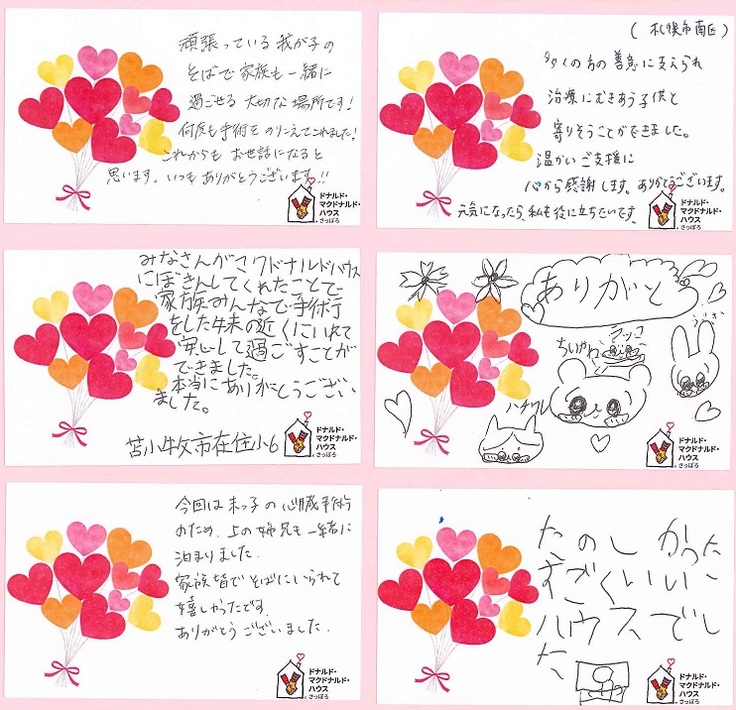 頑張っている我が子の
そばで家族も一緒に
過ごせる大切な場所です!
何度も手術をのりこえてこれました!
これからもお世話になると
思います。いつもありがとうございます!!
ドナルド・
マクドナルド・
ハウス
さっぽろ
(札幌市南区)
多くの方の善意に支えられ
治療にむきあう子供と
寄りそうことができました。
温かいご支援に
心から感謝します。ありがとうございます。
元気になったら私も役に立ちたいです。
ドナルド・
マクドナルド・
ハウス
さっぽろ
みなさんがマクドナルドハウス
にぼきんしてくれたことで
家族みんなで手術
をした妹の近くにいれて
安心して過ごすことが
できました。
本当にありがとうござい
ました。
苫小牧市在住小6
ドナルド・
マクドナルド・
ハウス
さっぽろ
ありがと
ラッコ
ちいかわ
うさぎ
ハチワレ
ドナルド・
マクドナルド・
ハウス
さっぽろ
今回は末っ子の心臓手術
のため、上の姉兄も一緒に
泊まりました。
家族皆でそばにいられて
嬉しかったです。
ありがとうございました。
ドナルド・
マクドナルド・
ハウス
さっぽろ
たのしかった
すごくいい
ハウスでし
た
ドナルド・
マクドナルド・
ハウス
さっぽろ